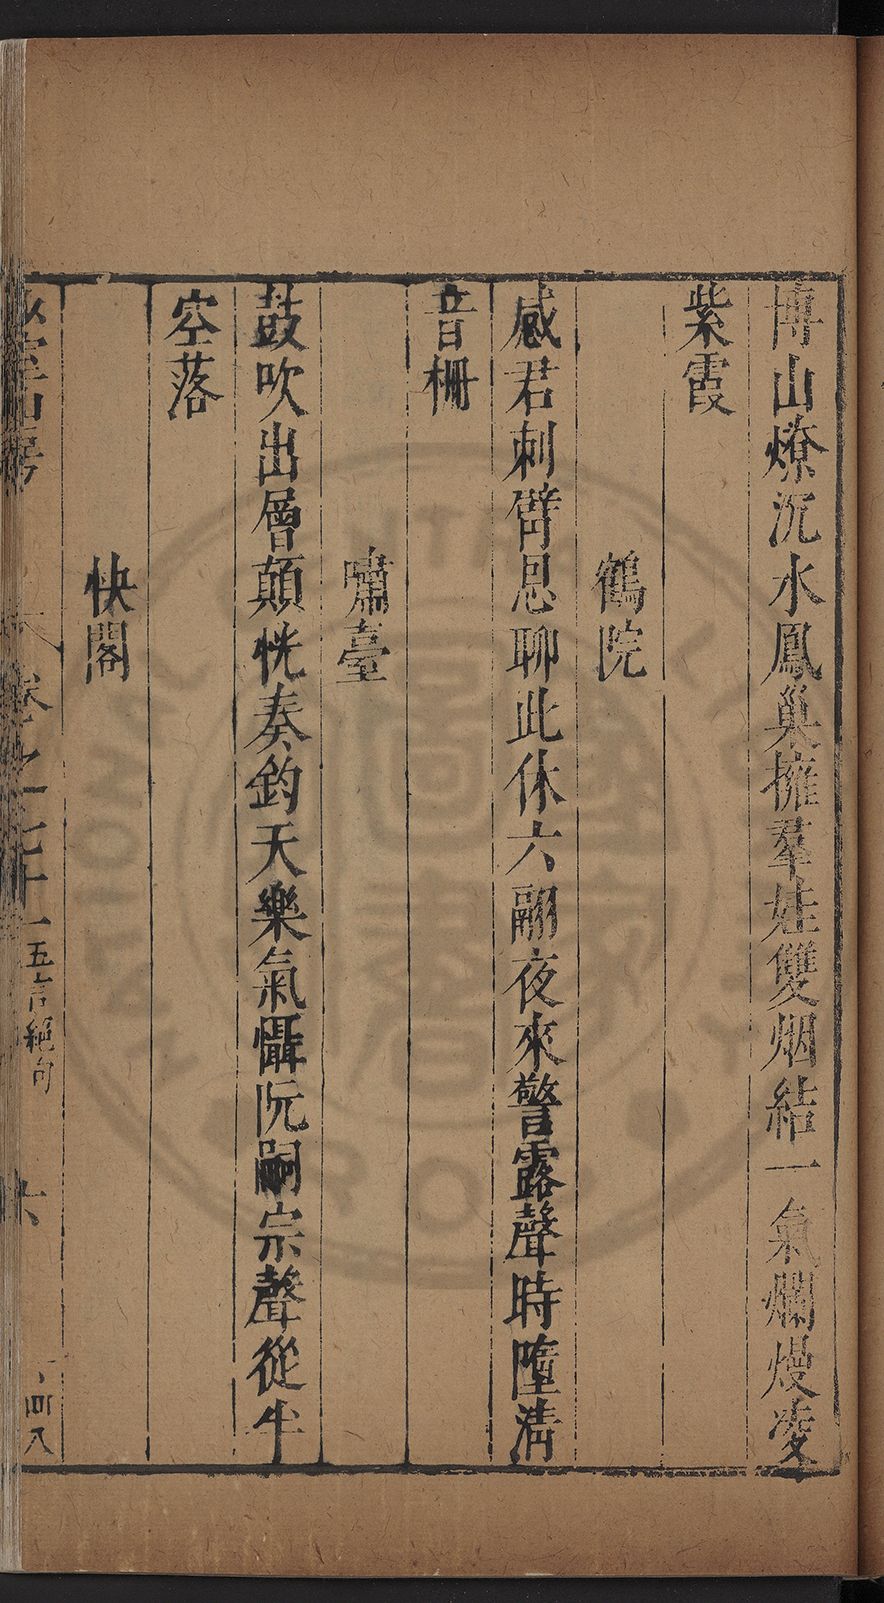 博山燎沉水鳳巢擁羣娃雙烟結一氣爛熳凌
紫霞
鶴院
感君刺臂恩聊此休六翮夜來警露聲時墮清
音柵
嘯臺
鼓吹出層顛恍奏鈞天樂氣懾阮嗣宗聲從半
空落
快閣
山房
卷之七十一
五言絕句
六